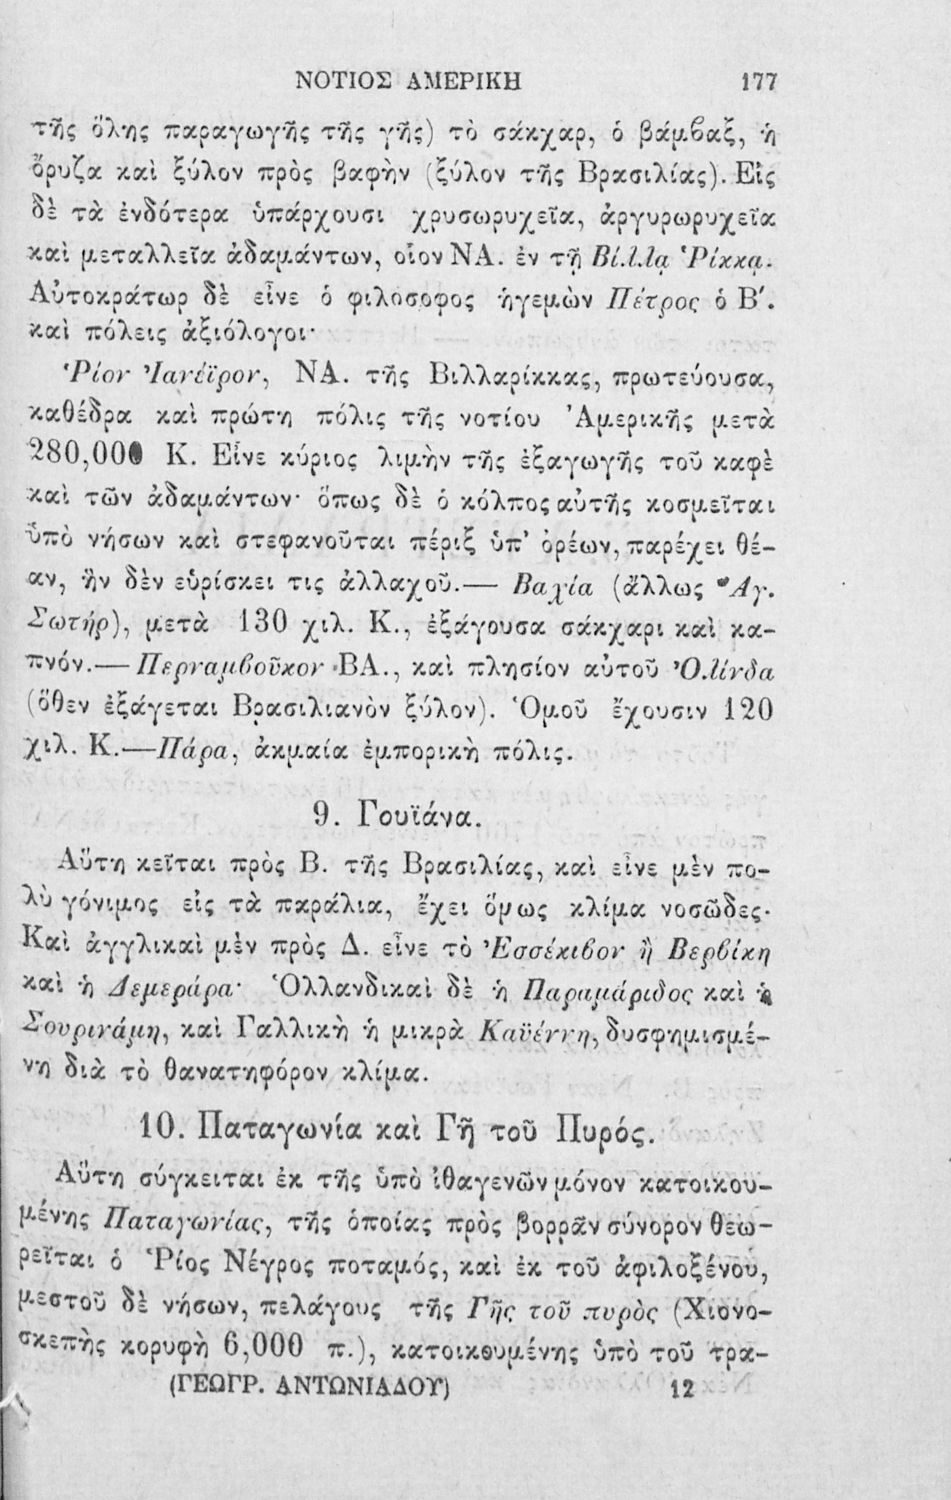 ΝΟΤΙΟΣ ΑΜΕΡΙΚΗ 177
τῆς ὅλης παραγωγῆς τῆς γῆς) τὸ σάκχαρ, ὁ βάμβαξ, ἡ
ὄρυζα καὶ ξύλον πρὸς βαφὴν (ξύλον τῆς Βρασιλίας). Εἰς
δὲ τὰ ἐνδότερα ὑπάρχουσι χρυσωρυχεῖα, ἀργυρωρυχεῖα
καὶ μεταλλεῖα ἀδαμάντων, οἷον ΝΑ. ἐν τῇ Βίλλᾳ Ῥίκκᾳ.
Αὐτοκράτωρ δὲ εἶνε ὁ φιλόσοφος ἡγεμὼν Πέτρος ὁ Β′.
καὶ πόλεις ἀξιόλογοι·
Ῥίον Ἰανέϊρον, ΝΑ. τῆς Βιλλαρίκκας, πρωτεύουσα,
καθέδρα καὶ πρώτη πόλις τῆς νοτίου Ἀμερικῆς μετὰ
280,000 Κ. Εἶνε κύριος λιμὴν τῆς ἐξαγωγῆς τοῦ καφὲ
καὶ τῶν ἀδαμάντων· ὅπως δὲ ὁ κόλπος αὐτῆς κοσμεῖται
ὑπὸ νήσων καὶ στεφανοῦται πέριξ ὑπ' ὀρέων, παρέχει θέ-
αν, ἣν δὲν εὑρίσκει τις ἀλλαχοῦ.— Βαχία (ἄλλως Ἅγ.
Σωτήρ), μετὰ 130 χιλ. Κ., ἐξάγουσα σάκχαρι καὶ κα-
πνόν.— Περναμβοῦκον ΒΑ., καὶ πλησίον αὐτοῦ Ὀλίνδα
(ὅθεν ἐξάγεται Βρασιλιανὸν ξύλον). Ὁμοῦ ἔχουσιν 120
χιλ. Κ.—Πάρα, ἀκμαία ἐμπορικὴ πόλις.
9. Γουϊάνα.
Αὕτη κεῖται πρὸς Β. τῆς Βρασιλίας, καὶ εἶνε μὲν πο-
λὺ γόνιμος εἰς τὰ παράλια, ἔχει ὅμως κλίμα νοσῶδες·
Καὶ ἀγγλικαὶ μὲν πρὸς Δ. εἶνε τὸ Ἐσσέκιβον ἢ Βερβίκη
καὶ ἡ Δεμεράρα· Ὁλλανδικαὶ δὲ ἡ Παραμάριδος καὶ ἡ
Σουρινάμη, καὶ Γαλλικὴ ἡ μικρὰ Καϋέννη, δυσφημισμέ-
νη διὰ τὸ θανατηφόρον κλίμα.
10. Παταγωνία καὶ Γῆ τοῦ Πυρός.
Αὕτη σύγκειται ἐκ τῆς ὑπὸ ἰθαγενῶν μόνον κατοικου-
μένης Παταγωνίας, τῆς ὁποίας πρὸς βορρᾶν σύνορον θεω-
ρεῖται ὁ Ῥίος Νέγρος ποταμός, καὶ ἐκ τοῦ ἀφιλοξένου,
μεστοῦ δὲ νήσων, πελάγους τῆς Γῆς τοῦ πυρὸς (Χιονο-
σκεπὴς κορυφὴ 6,000 π.), κατοικουμένης ὑπὸ τοῦ τρα-
(ΓΕΩΓΡ. ΑΝΤΩΝΙΑΔΟΥ) 12